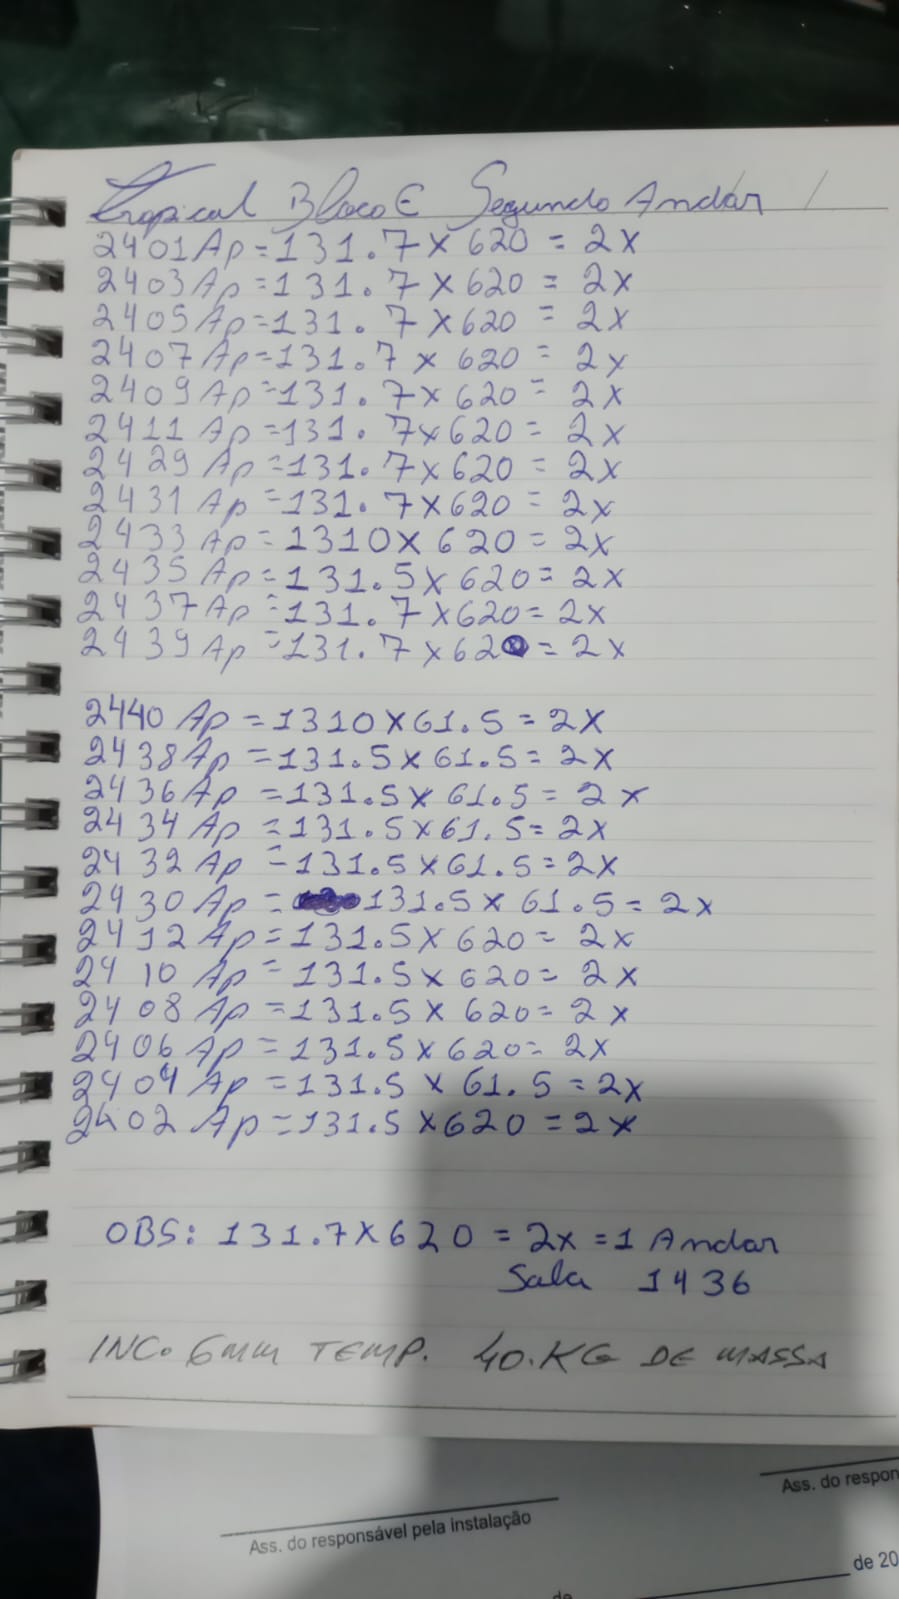 Tropical Bloco E Segundo Andar
2401 Ap = 131.7 x 620 = 2x
2403 Ap = 131.7 x 620 = 2x
2405 Ap = 131.7 x 620 = 2x
2407 Ap = 131.7 x 620 = 2x
2409 Ap = 131.7 x 620 = 2x
2411 Ap = 131.7 x 620 = 2x
2429 Ap = 131.7 x 620 = 2x
2431 Ap = 131.7 x 620 = 2x
2433 Ap = 1310 x 620 = 2x
2435 Ap = 131.5 x 620 = 2x
2437 Ap = 131.7 x 620 = 2x
2439 Ap = 131.7 x 620 = 2x
2440 Ap = 1310 x 61.5 = 2x
2438 Ap = 131.5 x 61.5 = 2x
2436 Ap = 131.5 x 61.5 = 2x
2434 Ap = 131.5 x 61.5 = 2x
2432 Ap = 131.5 x 61.5 = 2x
2430 Ap = 131.5 x 61.5 = 2x
2412 Ap = 131.5 x 620 = 2x
2410 Ap = 131.5 x 620 = 2x
2408 Ap = 131.5 x 620 = 2x
2406 Ap = 131.5 x 620 = 2x
2404 Ap = 131.5 x 61.5 = 2x
2402 Ap = 131.5 x 620 = 2x
OBS: 131.7 x 620 = 2x = 1 Andar
Sala 1436
INC. 6MM TEMP. 40.KG DE MASSA
Ass. do respon
Ass. do responsável pela instalação
de 20
de